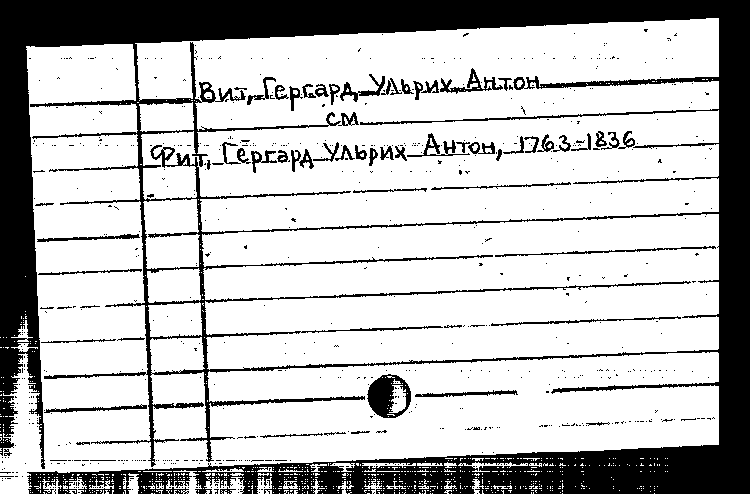 Вит, Гергард Ульрих Антон
см
Фит, Гергард Ульрих Антон, 1763-1836